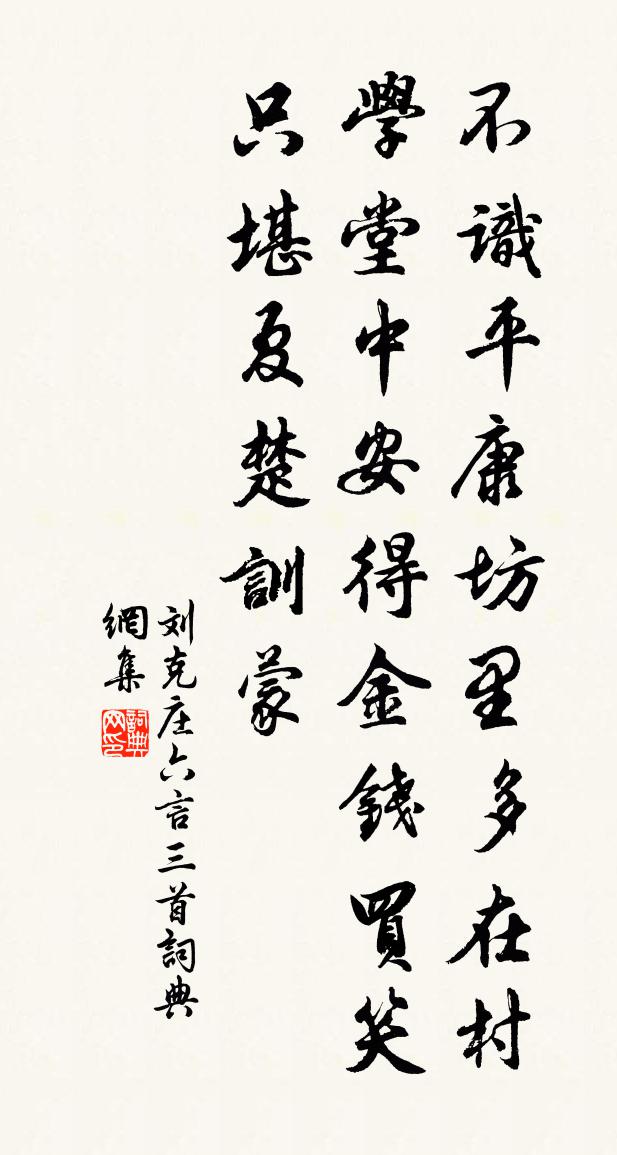 不識平康坊里多在村
學堂中安得金錢買笑
只堪夏楚訓蒙
刘克庄六言三首詞典
網集
詞典網印